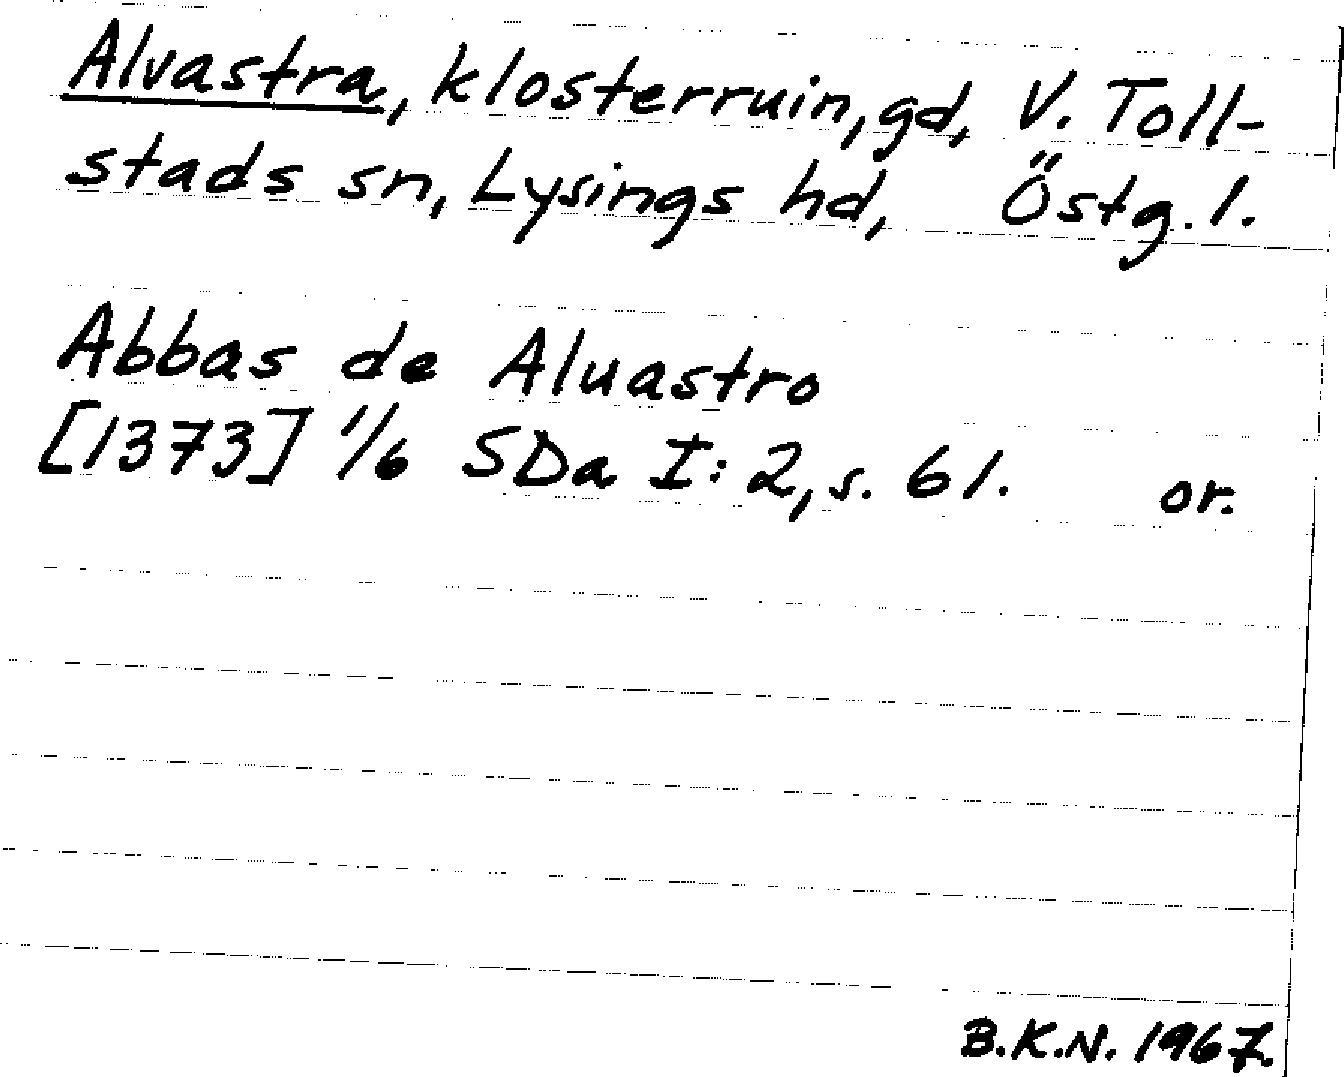 Alvastra, klosterruin, gd, V. Toll-
stads sn, Lysings hd, Östg. l.
Abbas de Aluastro
[1373] 1/6 SDa I: 2, s. 61. or.
B.K.N. 1967.